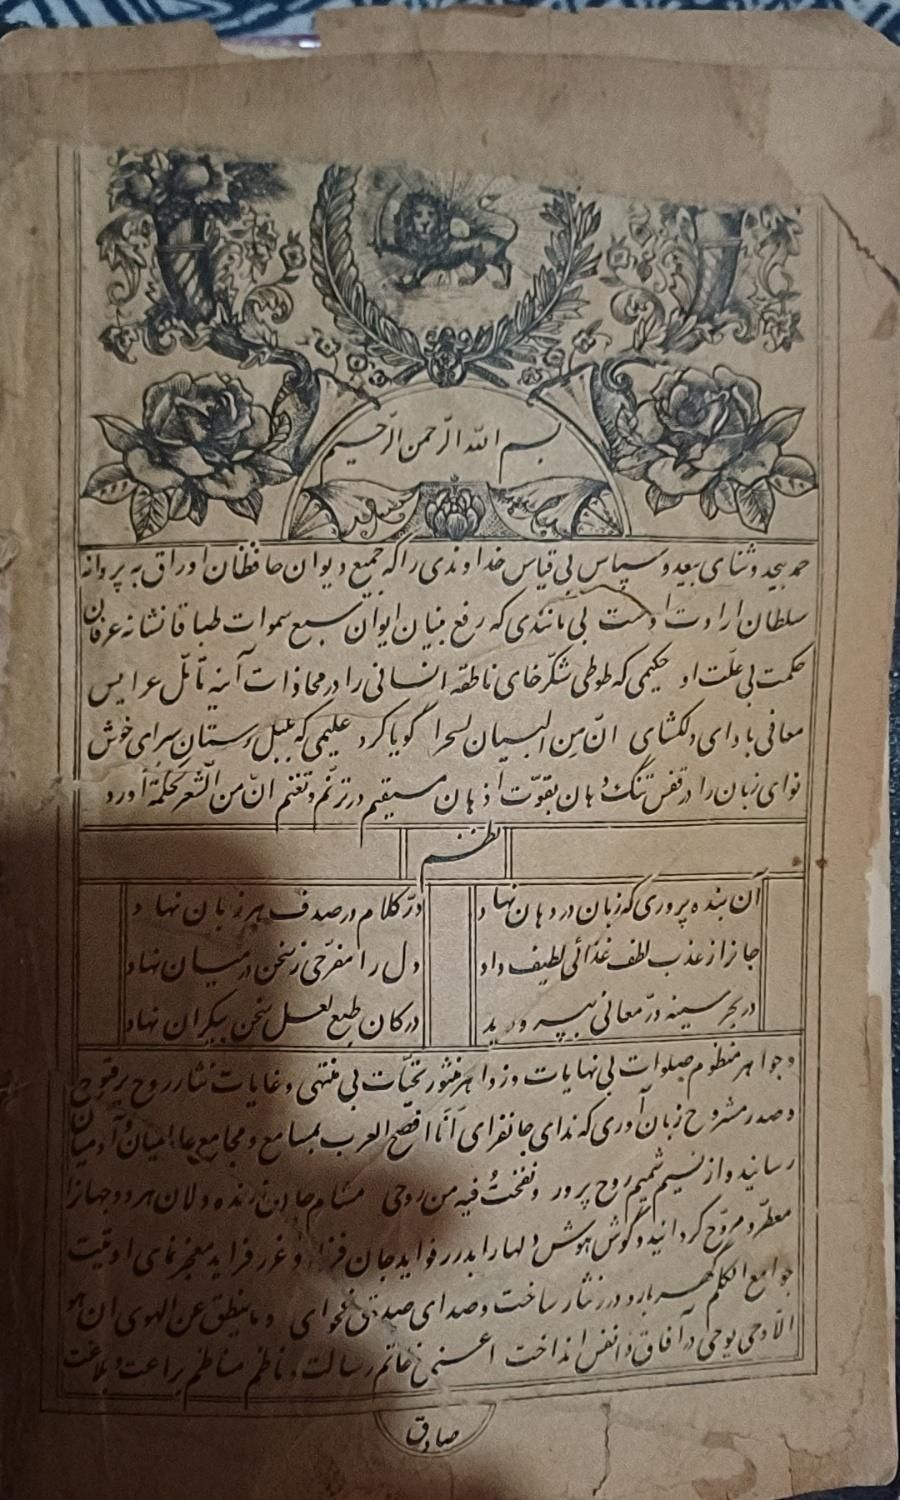 بسم الله الرّحمن الرّحیم
حمد بیحد و ثنای بیعد و سپاس بی قیاس خداوندی را که جمیع دیوان حافظان اوراق به پروانه
سلطان ارادت اوست بی مانندی که رفع بنیان ایوان سبع سموات طباقا نشانه عرفان
حکمت بی علّت او حکیمی که طوطی شکّرخای ناطقه انسانی را در محاذات آینه تأمّل عرایس
معانی بادای دلگشای انّ من البیان لسحرا گویا کرد علیمی که بلبل دستان سرای خوش
نوای زبان را در قفس تنگ دهان بقوّت اذهان مستقیم در ترنّم و تغنم انّ من الشّعر لحکمة آورد
نظم
آن بنده پروری که زبان در دهان نهاد درّ کلام در صدف هر زبان نهاد
جانرا ز عذب لطف غذائی لطیف داد دل را مفرّحی ز سخن در میان نهاد
در بحر سینه درّ معانی بپرورید در کان طبع لعل سخن بیکران نهاد
و جواهر منظوم صلوات بی نهایات و زواهر منثور تحیّات بی منتهی و غایات نثار روح پر فتوح
و صدر مشروح زبان آوری که ندای جانفزای أنا افصح العرب بمسامع و مجامع عالمیان و آدمیان
رسانید و از نسیم شمیم روح پرور و نفخت فیه من روحی مشام جان زنده دلان هر دو جهانرا
معطّر و مروّح گردانید و گوش هوش دلها را بدرر فواید جان فزا و غرر فراید معجز نمای اوتیت
جوامع الکلم گهربار و درر نثار ساخت و صدای صدق فحوای و ما ینطق عن الهوی ان هو
الّا وحی یوحی در آفاق و انفس انداخت اعنی خاتم رسالت و ناظم مناظم براعت و بلاغت
صادق